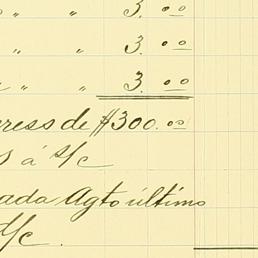 " " 3. 00
" " 3. 00
" " 3. 00
ress de $300. 00
s á s/c
ada Agto último
s/c.